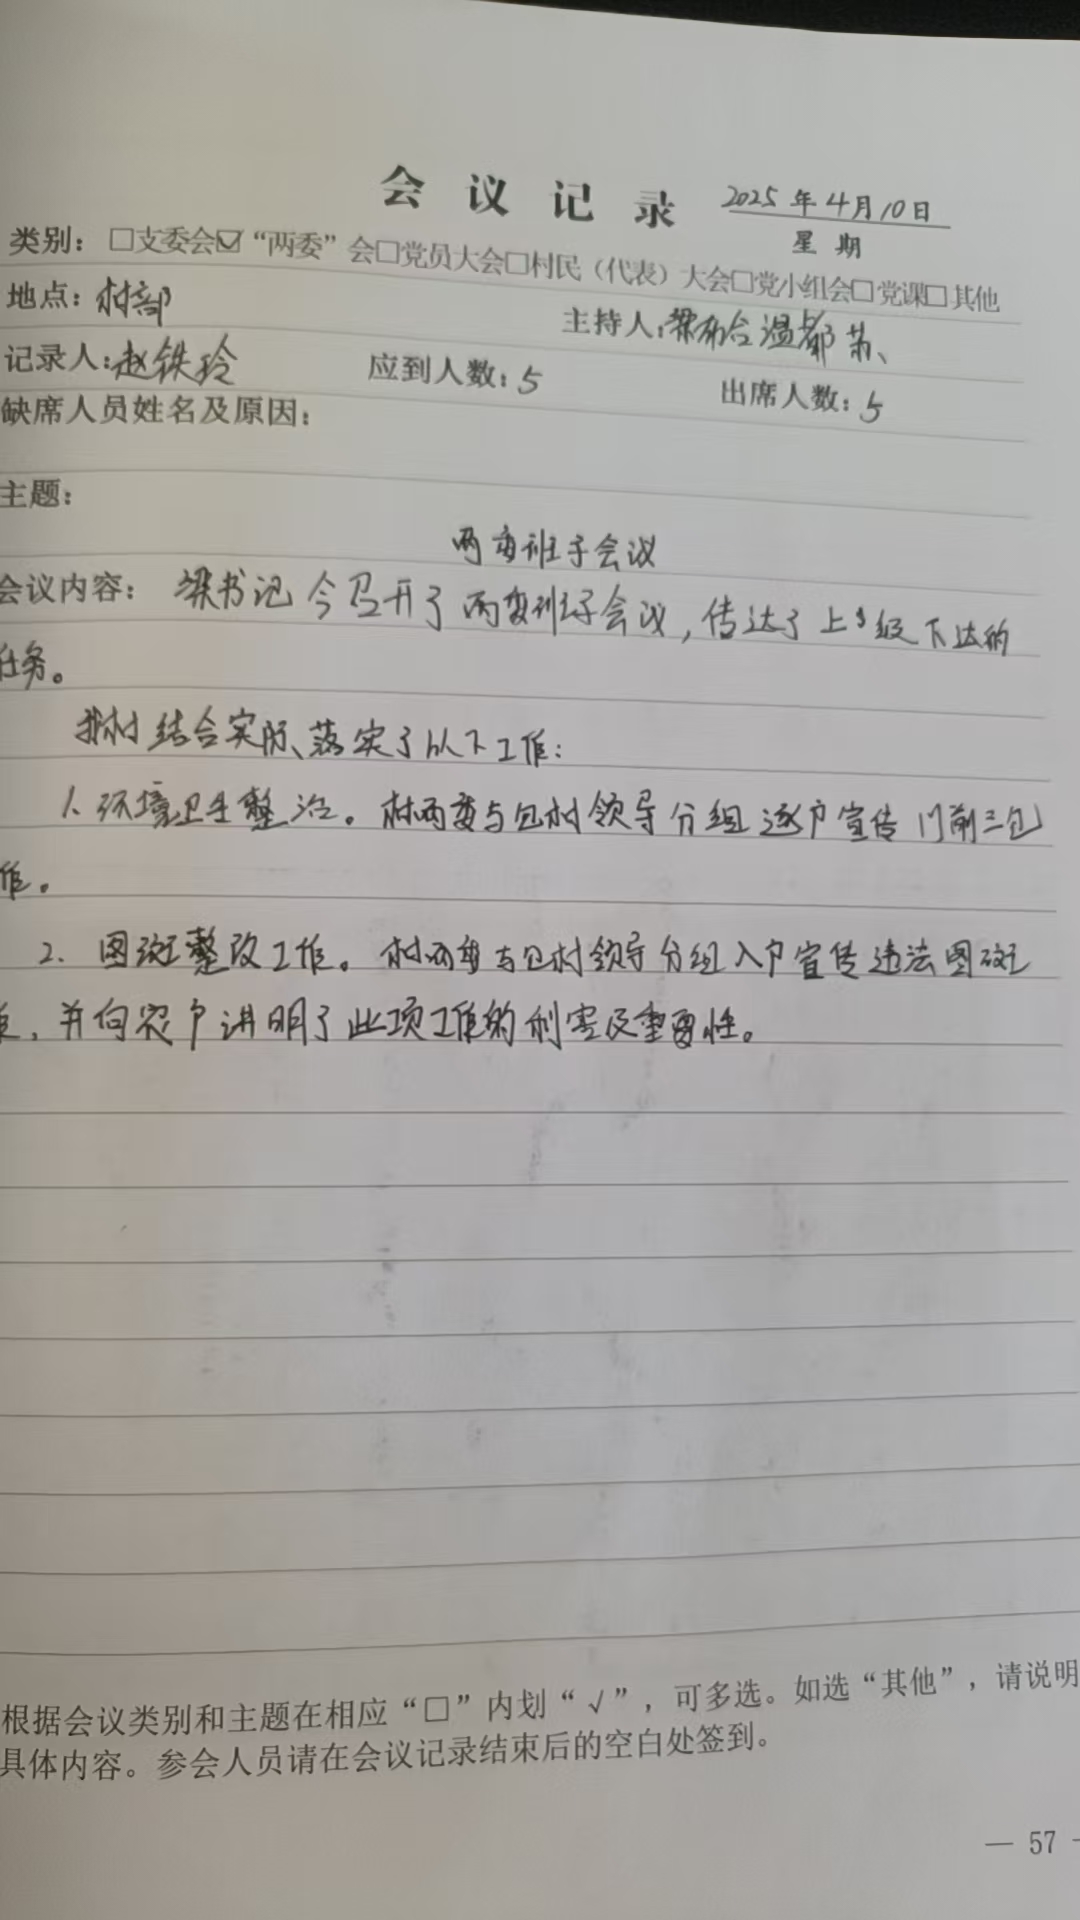 会议记录 2025年4月10日
星期
类别：□支委会☑“两委”会□党员大会□村民（代表）大会□党小组会□党课□其他
地点：村部 主持人：梁布合温都苏、
记录人：赵铁玲 应到人数：5 出席人数：5
缺席人员姓名及原因：
主题：
两委班子会议
会议内容：梁书记今召开了两委班子会议，传达了上级下达的
任务。
我村结合实际、落实了以下工作：
1、环境卫生整治。村两委与包村领导分组逐户宣传门前三包
作。
2、图斑整改工作。村两委与包村领导分组入户宣传违法图斑
，并向农户讲明了此项工作的利害及重要性。
根据会议类别和主题在相应“□”内划“√”，可多选。如选“其他”，请说明
具体内容。参会人员请在会议记录结束后的空白处签到。
— 57 -